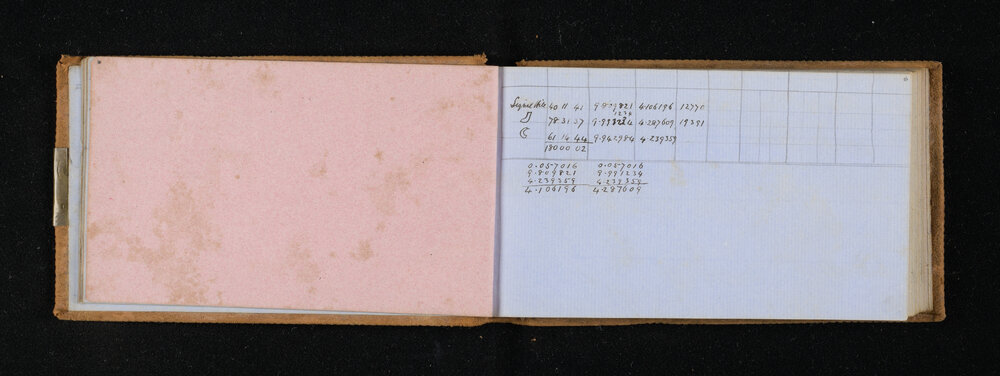 40 11 41 9.809821 4.106196 12770
1234
78 31 37 4.287609 19391
61 16 44 9.942984 4.239359
18000 02
0.057016 0.057016
9.809821 9.991234
4.239359 4.239359
4.106196 4.287609